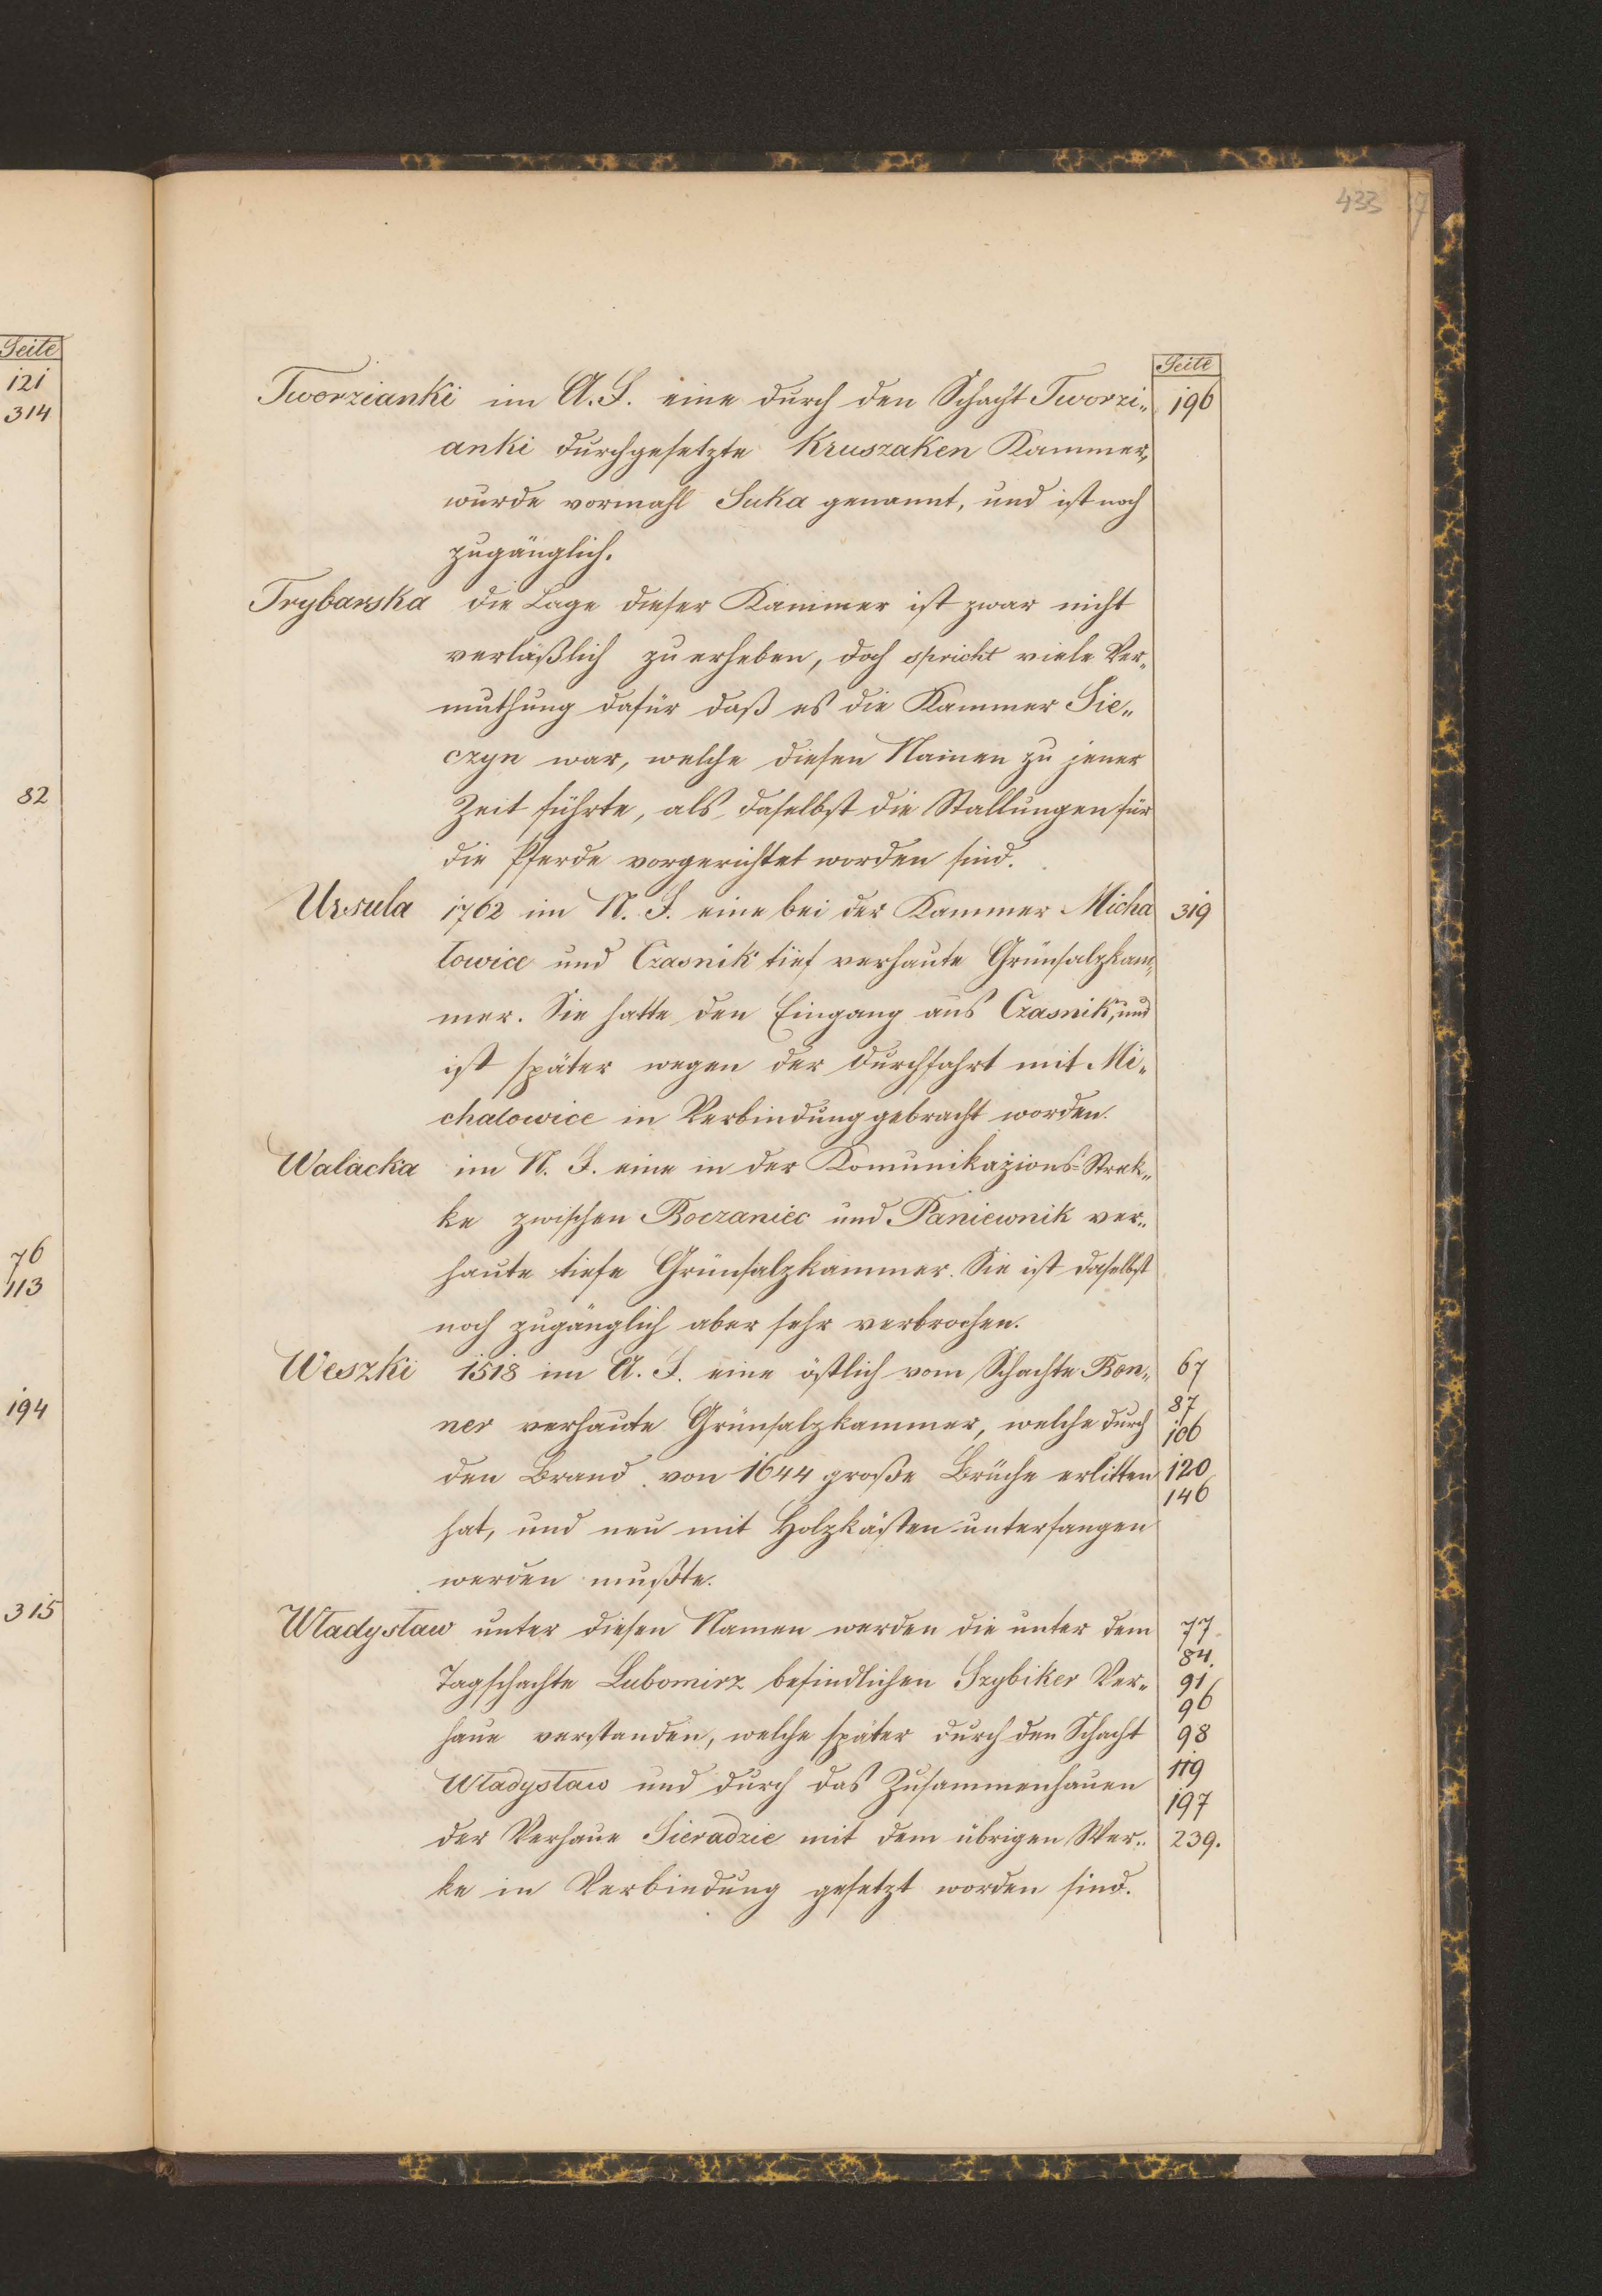 433
Seite
121
314
82
76
113
194
315
Seite
Tworzianki im A. F. eine durch den Schacht Tworzi„ 196
anki durchgesetzte Kruszaken Kammer,
wurde vormahl Suka genannt, und ist noch
zugänglich.
Trybarska die Lage dieser Kammer ist zwar nicht
verläßlich zu erheben, doch spricht viele Ver„
muthung dafür daß es die Kammer Sie„
czyn war, welche diesen Namen zu jener
Zeit führte, als daselbst die Stallungen für
die Pferde vorgerichtet worden sind.
Ursula 1762 im N. F. eine bei der Kammer Micha 319
łowice und Czasnik tief verhaute Grünsalzkam„
mer. Sie hatte den Eingang aus Czasnik, und
ist später wegen der Durchfahrt mit Mi„
chalowice in Verbindung gebracht worden.
Walacka im N. F. eine in der Komunikazions-Strek„
ke zwischen Boczaniec und Paniewnik ver„
haute tiefe Grünsalzkammer. Sie ist daselbst
noch zugänglich aber sehr verbrochen.
Weszki 1518 im A. F. eine östlich vom Schachte Bon„ 67
87
ner verhaute Grünsalzkammer, welche durch 106
den Brand von 1644 große Brüche erlitten 120
146
hat, und neu mit Holzkästen unterfangen
werden mußte.
Władysław unter diesen Namen werden die unter dem 77
84.
Tagschachte Lubomirz befindlichen Szybiker Ver„ 91
96
haue verstanden, welche später durch den Schacht 98
Władysław und durch das Zusammenhauen 119
197
der Verhaue Sieradzie mit dem übrigen Wer„ 239.
ke in Verbindung gesetzt worden sind.